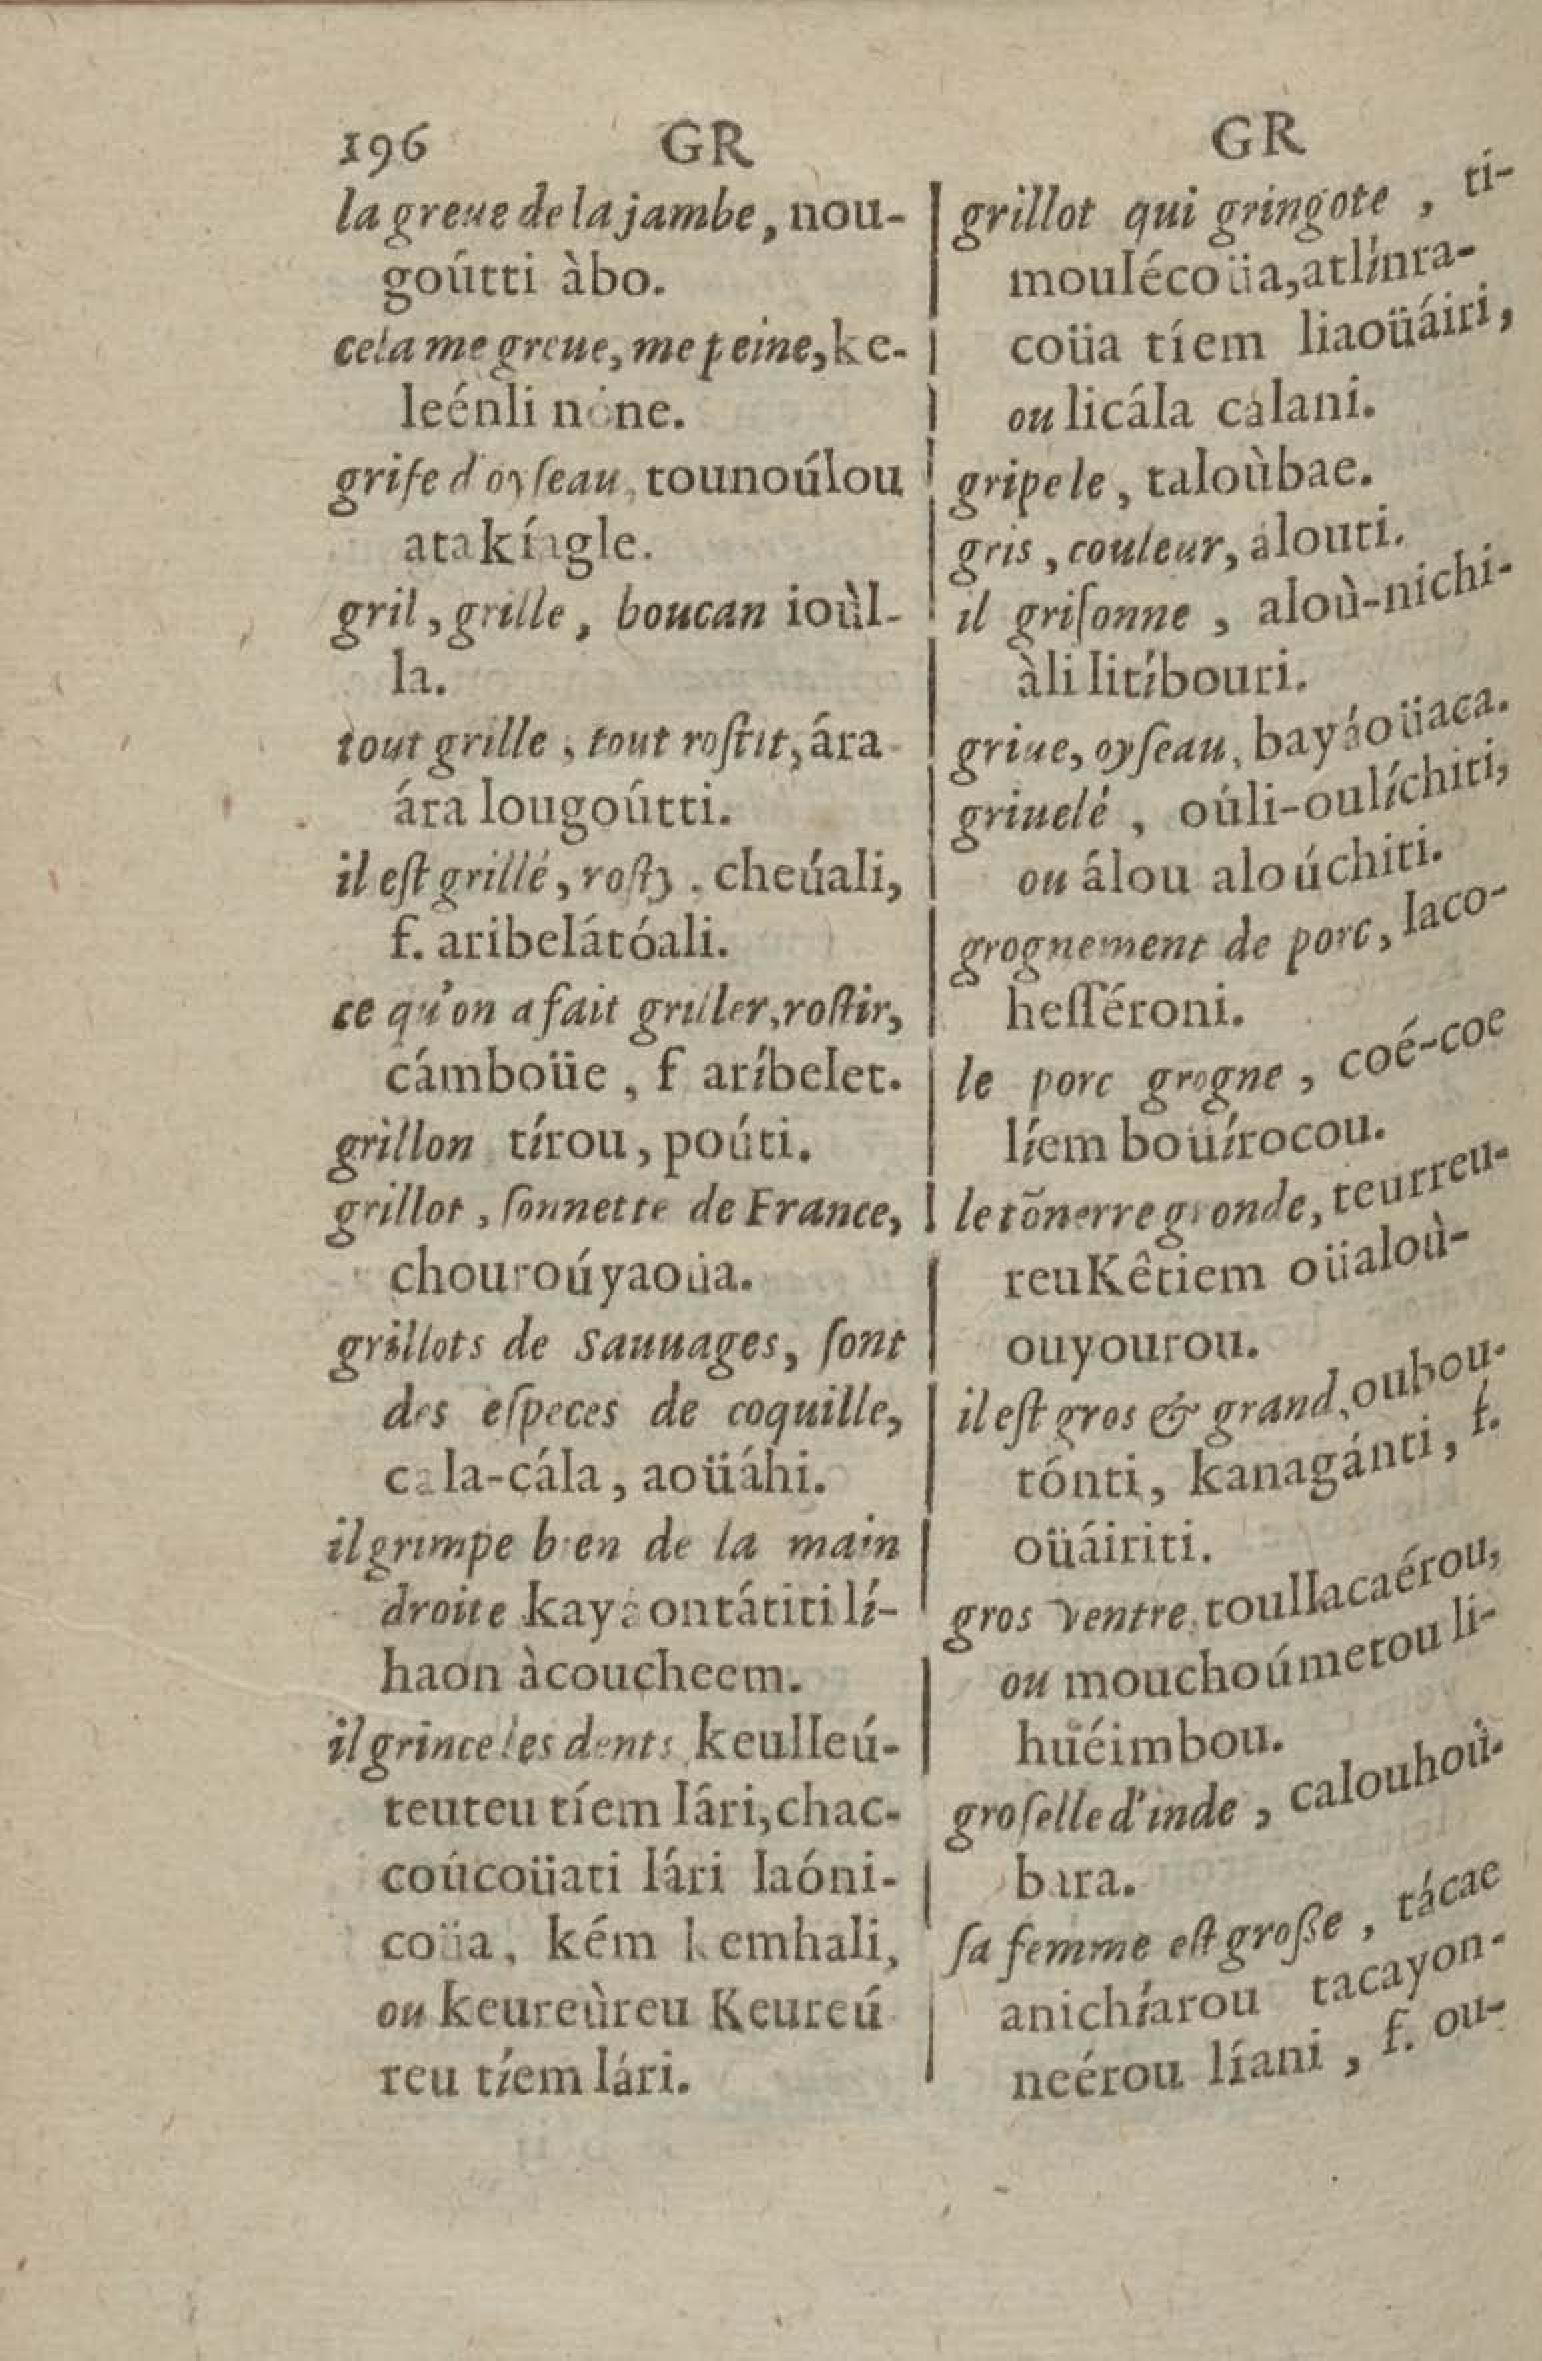 196 GR
la greue de la jambe, nou-
goútti àbo.
cela me greue, me peine, ke-
leénli none.
grife d'oyſeau, tounoúlou
atakíagle.
gril, grille, boucan ioùl-
la.
tout grille, tout roſtit, ára
ára lougoútti.
il eſt grillé, roſty. cheúali,
f. aribelátóali.
ce qu'on a fait griller, roſtir,
cámboüe, f aríbelet.
grillon tírou, poúti.
grillot, ſonnette de France,
chouroúyaoüa.
grillots de Sauuages, ſont
des eſpeces de coquille,
cala-cála, aoüáhi.
il grimpe bien de la main
droite ontátiti lí-
haon àcoucheem.
il grince les dents keulleú-
teuteu tíem lári, chac-
coúcoüati lári laóni-
coüa, kém kemhali,
ou keureùreu Keureú
reu tíem lári.
GR
grillot qui gringote, ti-
moulécoüa, atlínra-
coüa tíem liaoüáiri,
ou licála calani.
gripele, taloùbae.
gris, couleur, álouti.
il griſonne, aloù-nichi-
àli litíbouri.
griue, oyſeau, bayáoüaca.
griuelé, oúli-oulíchiti,
ou álou aloúchiti.
grognement de porc, laco-
heſſéroni.
le porc grogne, coé-coe
líem bouírocou.
le tõnerre gronde, teurreu-
reuKêtiem oüaloù-
ouyourou.
il eſt gros & grand, oubou-
tónti, kanagánti, f.
oüáiriti.
gros ventre, toullacaérou,
ou mouchoúmetou li-
huéimbou.
groſelle d'inde, calouhoù-
bara.
ſa femme eſt groſſe, tácae
anichíarou tacayon-
neérou líani, f. ou-